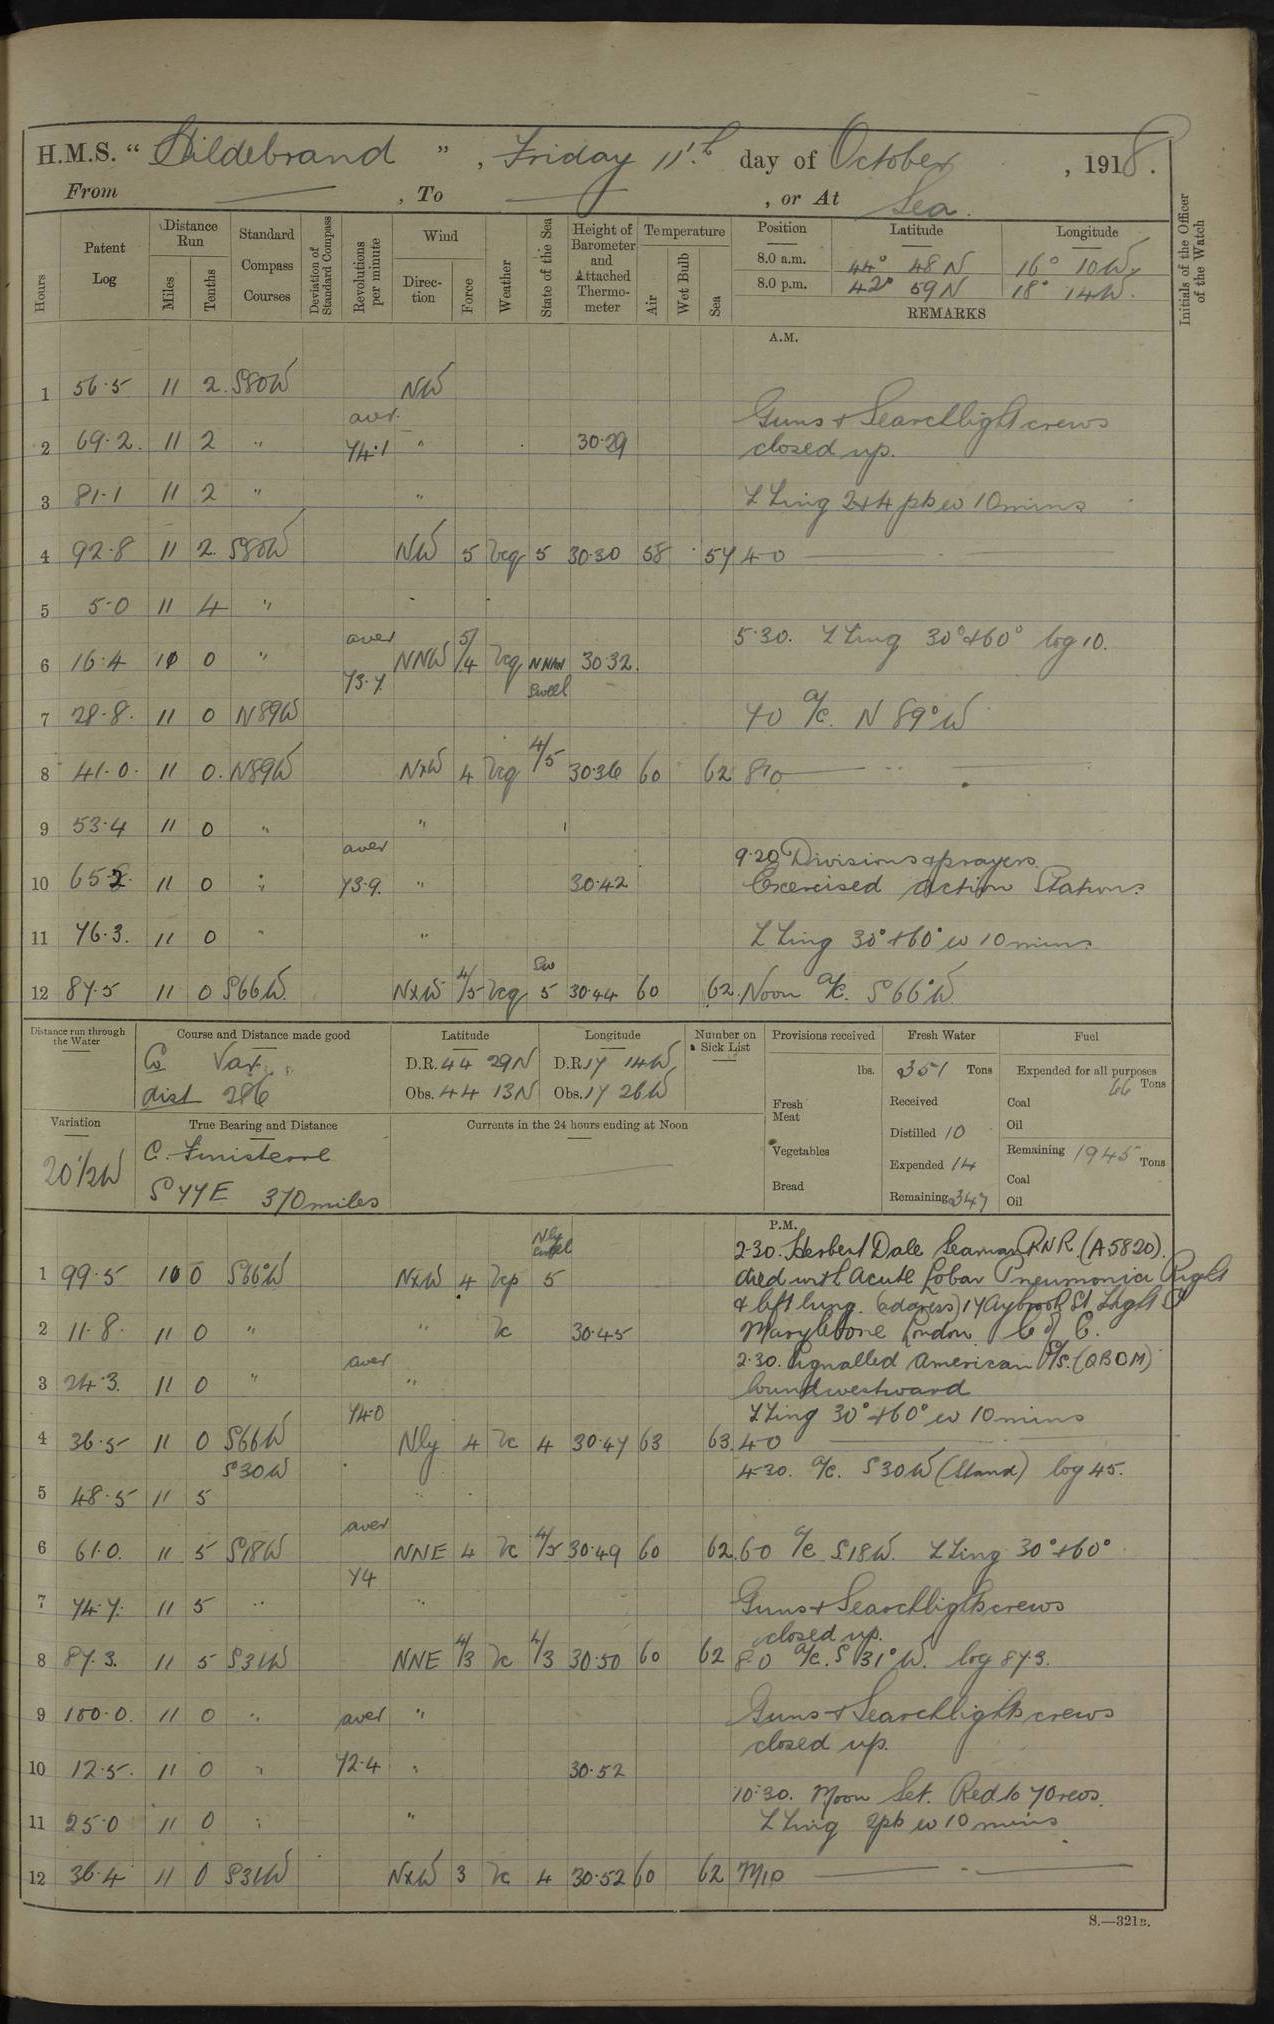 H.M.S. “Hildebrand”, Friday 11th day of October, 1918.
From — , To — , or At Sea.
Hours Patent Log Distance Run Miles Tenths Standard Compass Courses Deviation of Standard Compass Revolutions per minute Wind Direction Force Weather State of the Sea Height of Barometer and Attached Thermometer Temperature Air Wet Bulb Sea Position Latitude Longitude Initials of the Officer of the Watch
8.0 a.m. 44° 48 N 16° 10 W
8.0 p.m. 42° 59 N 18° 14 W.
REMARKS
A.M.
1 56.5 11 2 S80W NW
Guns & Searchlight crews
2 69.2 11 2 " aver 74.1 " 30.29 closed up.
3 81.1 11 2 " " 2 & 4 pts 10 mins
4 92.8 11 2 S80W NW 5 bcq 5 30.30 58 57 4.0 —
5 5.0 11 4 "
5.30. 30° & 60° log 10.
6 16.4 10 0 " aver 73.7 NNW 5/4 bcq NNW Swell 30.32
7 28.8 11 0 N89W 7.0 a/c. N 89° W
8 41.0 11 0 N89W NxW 4 bcq 4/5 30.36 60 62 8.0 —
9 53.4 11 0 " "
9.20 Divisions & prayers.
10 65.2 11 0 " aver 73.9 " 30.42 Exercised Action Stations.
11 76.3 11 0 " " 30° & 60° 10 mins.
12 87.5 11 0 S66W NxW 4/5 bcq 5 30.44 60 62 Noon a/c. S 66° W
Distance run through the Water Course and Distance made good Latitude Longitude Number on Sick List Provisions received Fresh Water Fuel
Co Var. D.R. 44 29 N D.R. 17 14 W lbs. 351 Tons Expended for all purposes 66 Tons
dist 286 Obs. 44 13 N Obs. 17 26 W Fresh Meat Received Coal
Oil
Variation True Bearing and Distance Currents in the 24 hours ending at Noon Distilled 10
20 1/2 W C. Finisterre Vegetables Expended 14 Remaining 1945 Tons
S 77 E 370 miles Bread Remaining 347 Coal
Oil
P.M.
2.30. Herbert Dale Seaman RNR (A5820).
1 99.5 10 0 S66°W NxW 4 bcp Nly swell 5 died with Acute Lobar Pneumonia Right
& left lung. (address) 17 Aybrook St
2 11.8 11 0 " " bc 30.45 Marylebone London C of E.
2.30. Signalled American S/S. (QBDM)
3 24.3 11 0 " aver 74.0 " bound westward
30° & 60° 10 mins
4 36.5 11 0 S66W Nly 4 bc 4 30.47 63 63 4.0 —
S30W 4.30. a/c. S30W (Stand) log 45.
5 48.5 11 5
6 61.0 11 5 S18W aver 74 NNE 4 bc 30.49 60 62 6.0 a/c S18W. 30° & 60°
7 74.7 11 5 " " Guns & Searchlights crews
closed up.
8 87.3 11 5 S31W NNE 4/3 bc 4/3 30.50 60 62 8.0 a/c. S 31° W. log 87.3.
9 100.0 11 0 " aver " Guns & Searchlights crews
closed up.
10 12.5 11 0 " 72.4 " 30.52
10.30. Moon Set. Red to 70 revs.
11 25.0 11 0 " " 2 pts 10 mins
12 36.4 11 0 S31W NxW 3 bc 4 30.52 60 62 Mid —
S.—321B.